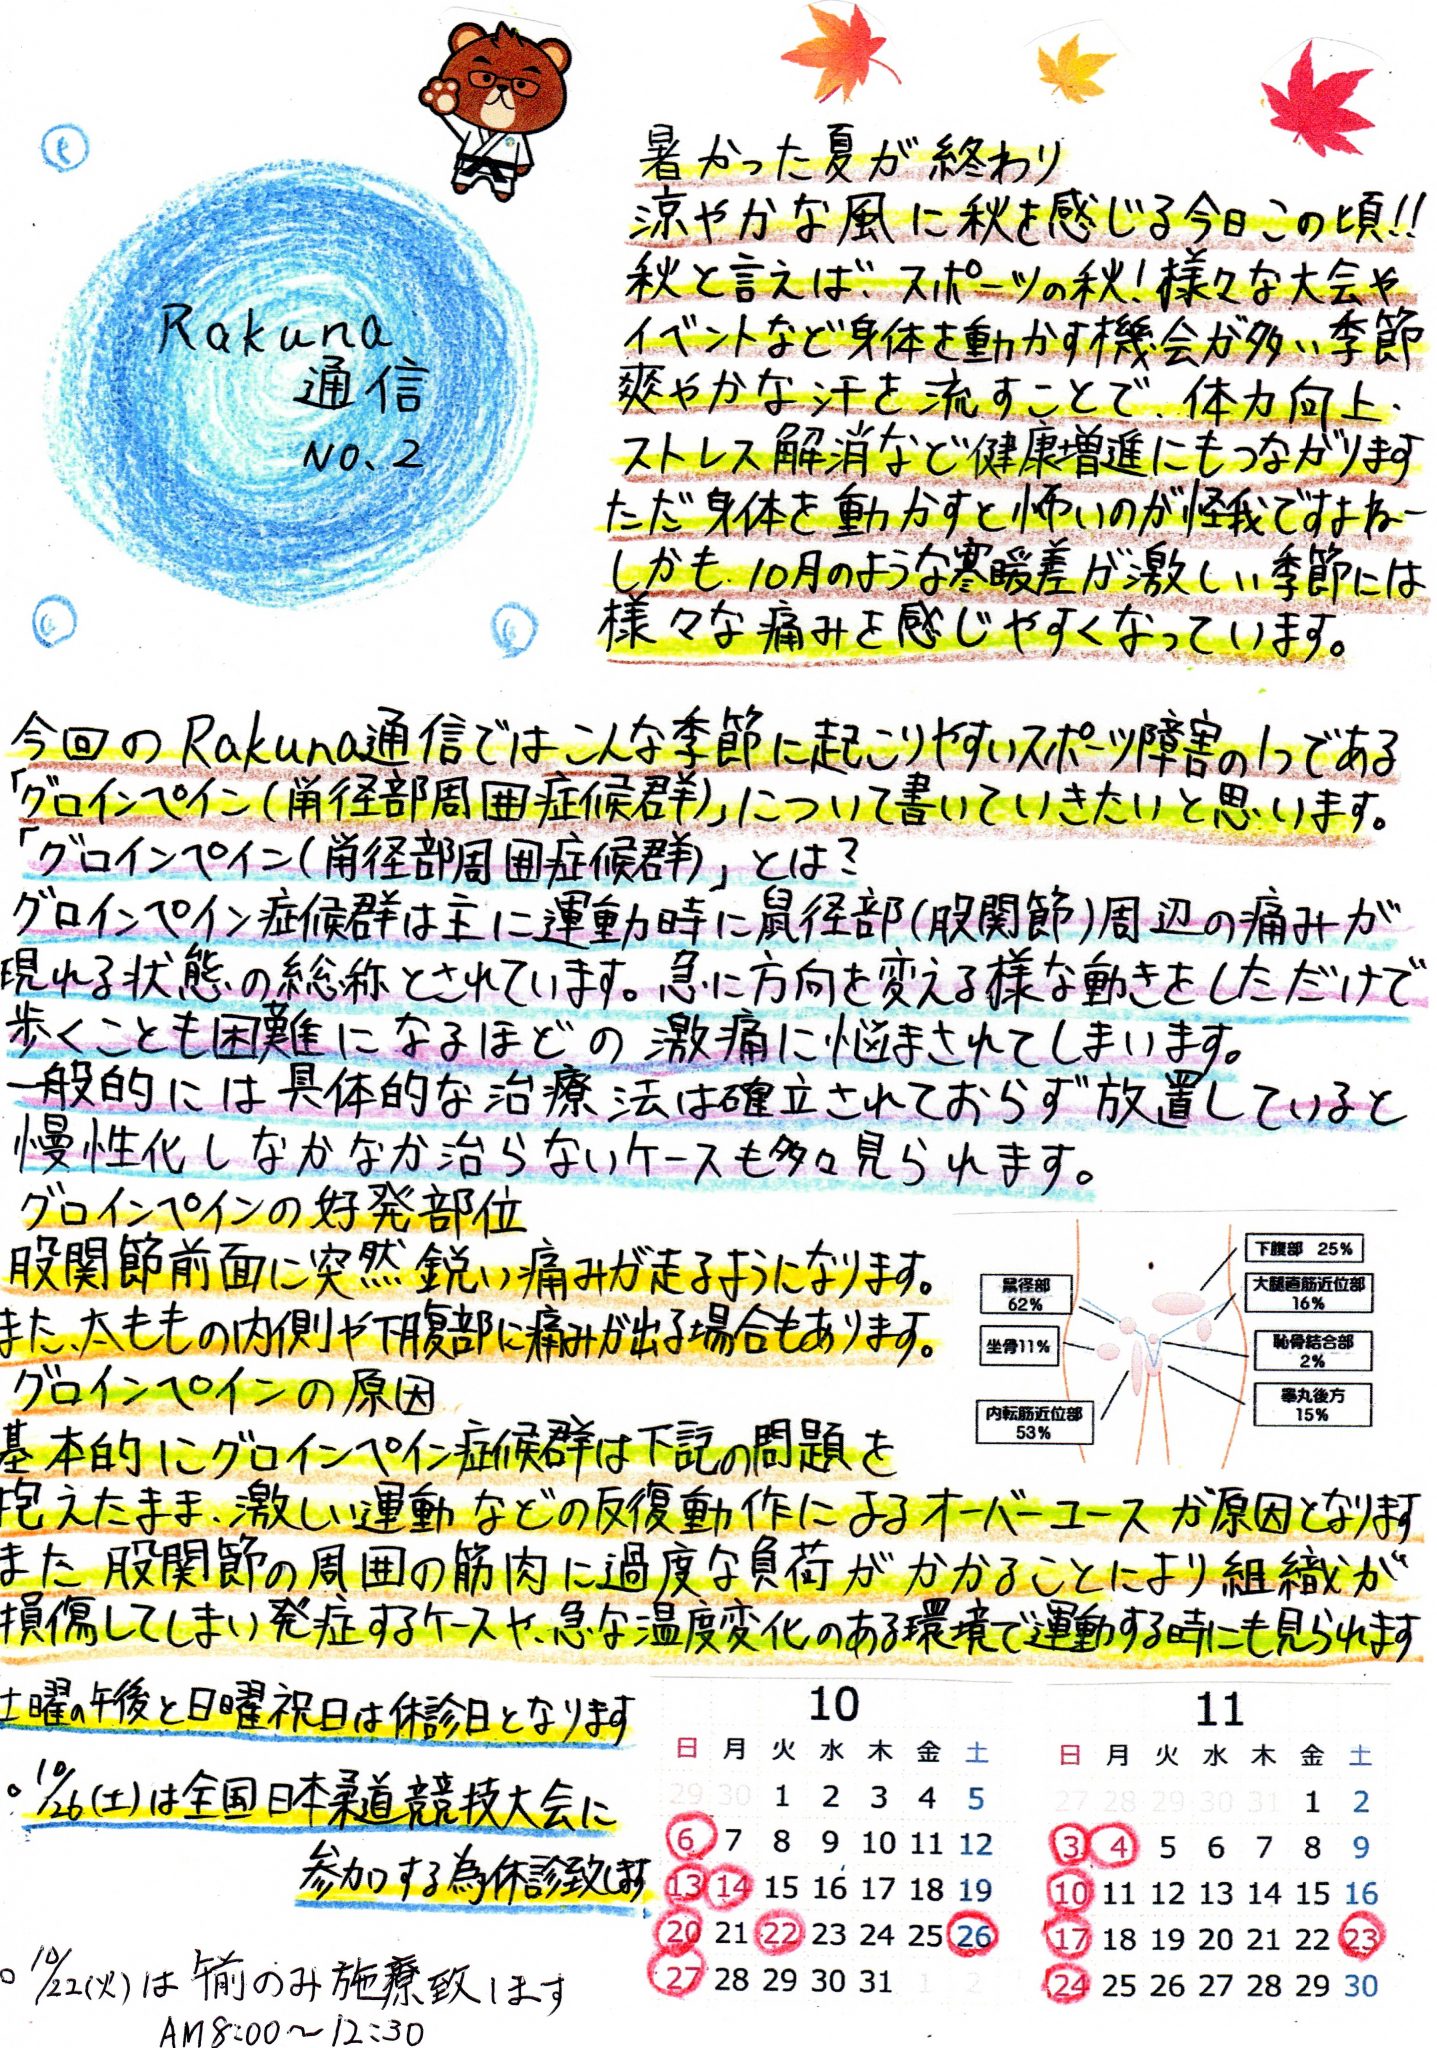 Rakuna
通信
NO.2
暑かった夏が終わり
涼やかな風に秋を感じる今日この頃!!
秋と言えば、スポーツの秋!様々な大会や
イベントなど身体を動かす機会が多い季節
爽やかな汗を流すことで、体力向上、
ストレス解消など健康増進にもつながります
ただ身体を動かすと怖いのが怪我ですよねー
しかも、10月のような寒暖差が激しい季節には
様々な痛みを感じやすくなっています。
今回のRakuna通信ではこんな季節に起こりやすいスポーツ障害の1つである
「グロインペイン(鼡径部周囲症候群)」について書いていきたいと思います。
「グロインペイン(鼡径部周囲症候群)」とは?
グロインペイン症候群は主に運動時に鼠径部(股関節)周辺の痛みが
現れる状態の総称とされています。急に方向を変える様な動きをしただけで
歩くことも困難になるほどの激痛に悩まされてしまいます。
一般的には具体的な治療法は確立されておらず放置していると
慢性化しなかなか治らないケースも多々見られます。
グロインペインの好発部位
股関節前面に突然鋭い痛みが走るようになります。
また、太ももの内側や下腹部に痛みが出る場合もあります。
下腹部 25%
鼠径部
62%
大腿直筋近位部
16%
坐骨11%
恥骨結合部
2%
内転筋近位部
53%
睾丸後方
15%
グロインペインの原因
基本的にグロインペイン症候群は下記の問題を
抱えたまま、激しい運動などの反復動作によるオーバーユースが原因となります
また股関節の周囲の筋肉に過度な負荷がかかることにより組織が
損傷してしまい発症するケースや、急な温度変化のある環境で運動する時にも見られます
土曜の午後と日曜祝日は休診日となります
○10/26(土)は全国日本柔道競技大会に
参加する為休診致します
○10/22(火)は午前のみ施療致します
AM8:00~12:30
10
日 月 火 水 木 金 土
29 30 1 2 3 4 5
6 7 8 9 10 11 12
13 14 15 16 17 18 19
20 21 22 23 24 25 26
27 28 29 30 31 1 2
11
日 月 火 水 木 金 土
27 28 29 30 31 1 2
3 4 5 6 7 8 9
10 11 12 13 14 15 16
17 18 19 20 21 22 23
24 25 26 27 28 29 30